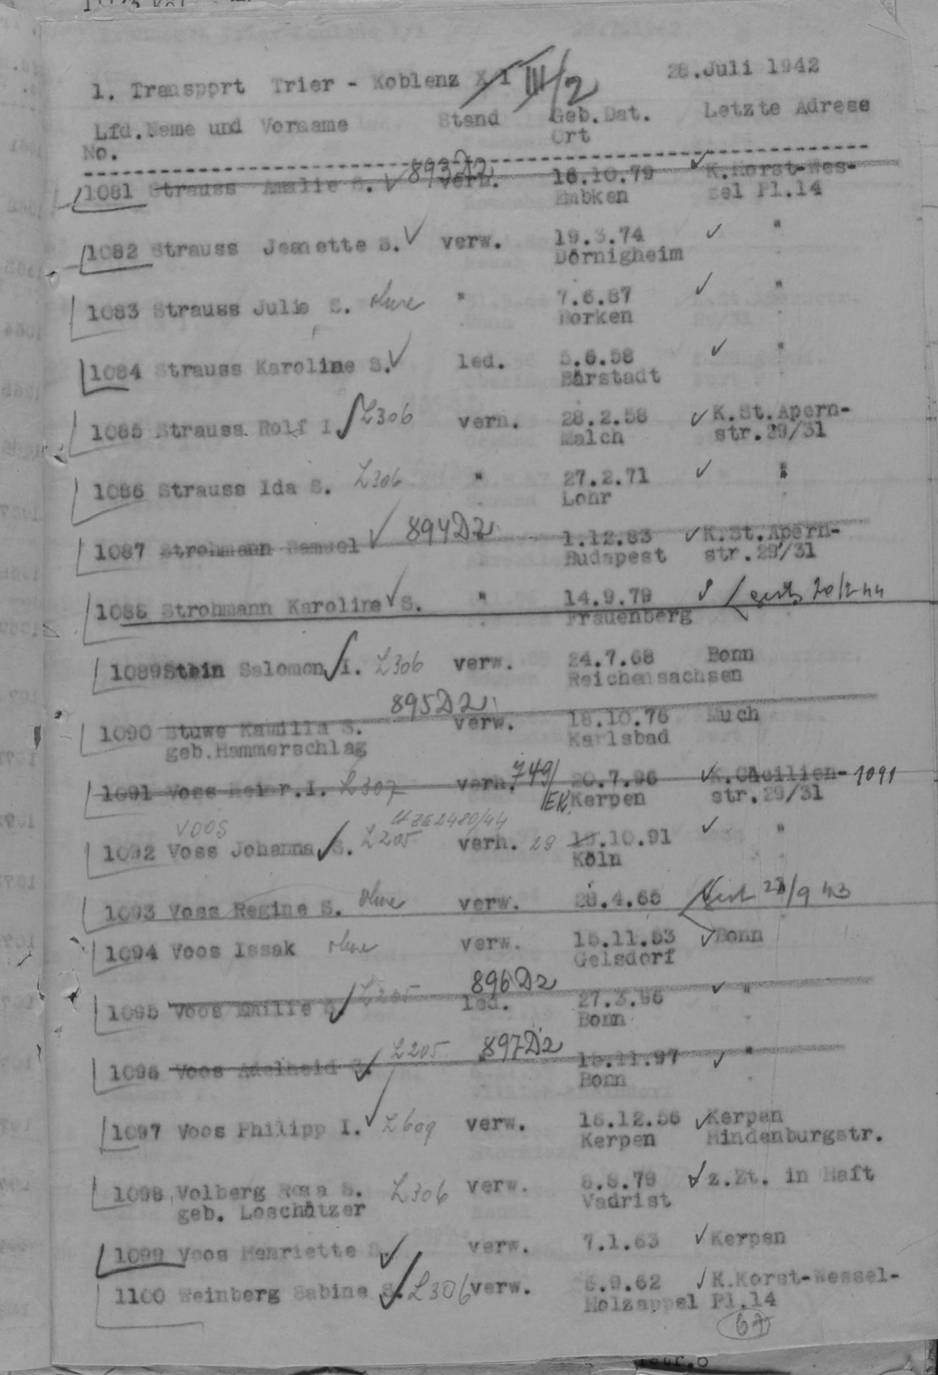 1. Transport Trier - Koblenz XI III/2 28.Juli 1942
Lfd.Name und Vorname Stand Geb.Dat. Letzte Adrese
No. Ort
1081 Strauss Amalie S. 893D2 verh. 16.10.79 K.Horst-Wes-
Embken sel Pl.14
1082 Strauss Jeanette S. verw. 19.3.74 "
Dörnigheim
1083 Strauss Julie S. ohne " 7.6.87 "
Borken
1084 Strauss Karoline S. led. 5.6.58 "
Bärstadt
1085 Strauss Rolf I. L306 verh. 28.2.58 K.St.Apern-
Malch str.29/31
1086 Strauss Ida S. L306 " 27.2.71 "
Lohr
1087 Strohmann Samuel 894D2 1.12.83 K.St.Apern-
Budapest str.29/31
1088 Strohmann Karoline S. " 14.9.79 gest. 20/2 44
Frauenberg
1089 Stein Salomon I. L306 verw. 24.7.68 Bonn
Reichensachsen
895D2
1090 Stuwe Kamilla S. verw. 18.10.76 Much
geb.Hammerschlag Karlsbad
1091 Voss I. L307 verh. 749/ 20.7.96 K.Cäcilien- 1091
EK. Kerpen str.29/31
VOOS
1092 Voss Johanna S. L205 verh. 28 15.10.91 "
Köln
1093 Voss Regine S. ohne verw. 28.4.65 gest 23/9 43
1094 Voos Issak ohne verw. 15.11.53 Bonn
Gelsdorf
896D2
1095 Voos Emilie S. L205 led. 27.3.96 "
Bonn
1096 Voos Adelheid S. L205 897D2 15.11.97 "
Bonn
1097 Voos Philipp I. L609 verw. 16.12.56 Kerpen
Kerpen Hindenburgstr.
1098 Volberg Rosa S. L306 verw. 8.8.79 z.Zt. in Haft
geb. Loschätzer Vadrist
1099 Voos Henriette S. verw. 7.1.63 Kerpen
1100 Weinberg Sabine S. L306 verw. 6.9.62 K.Horst-Wessel-
Holzappel Pl.14